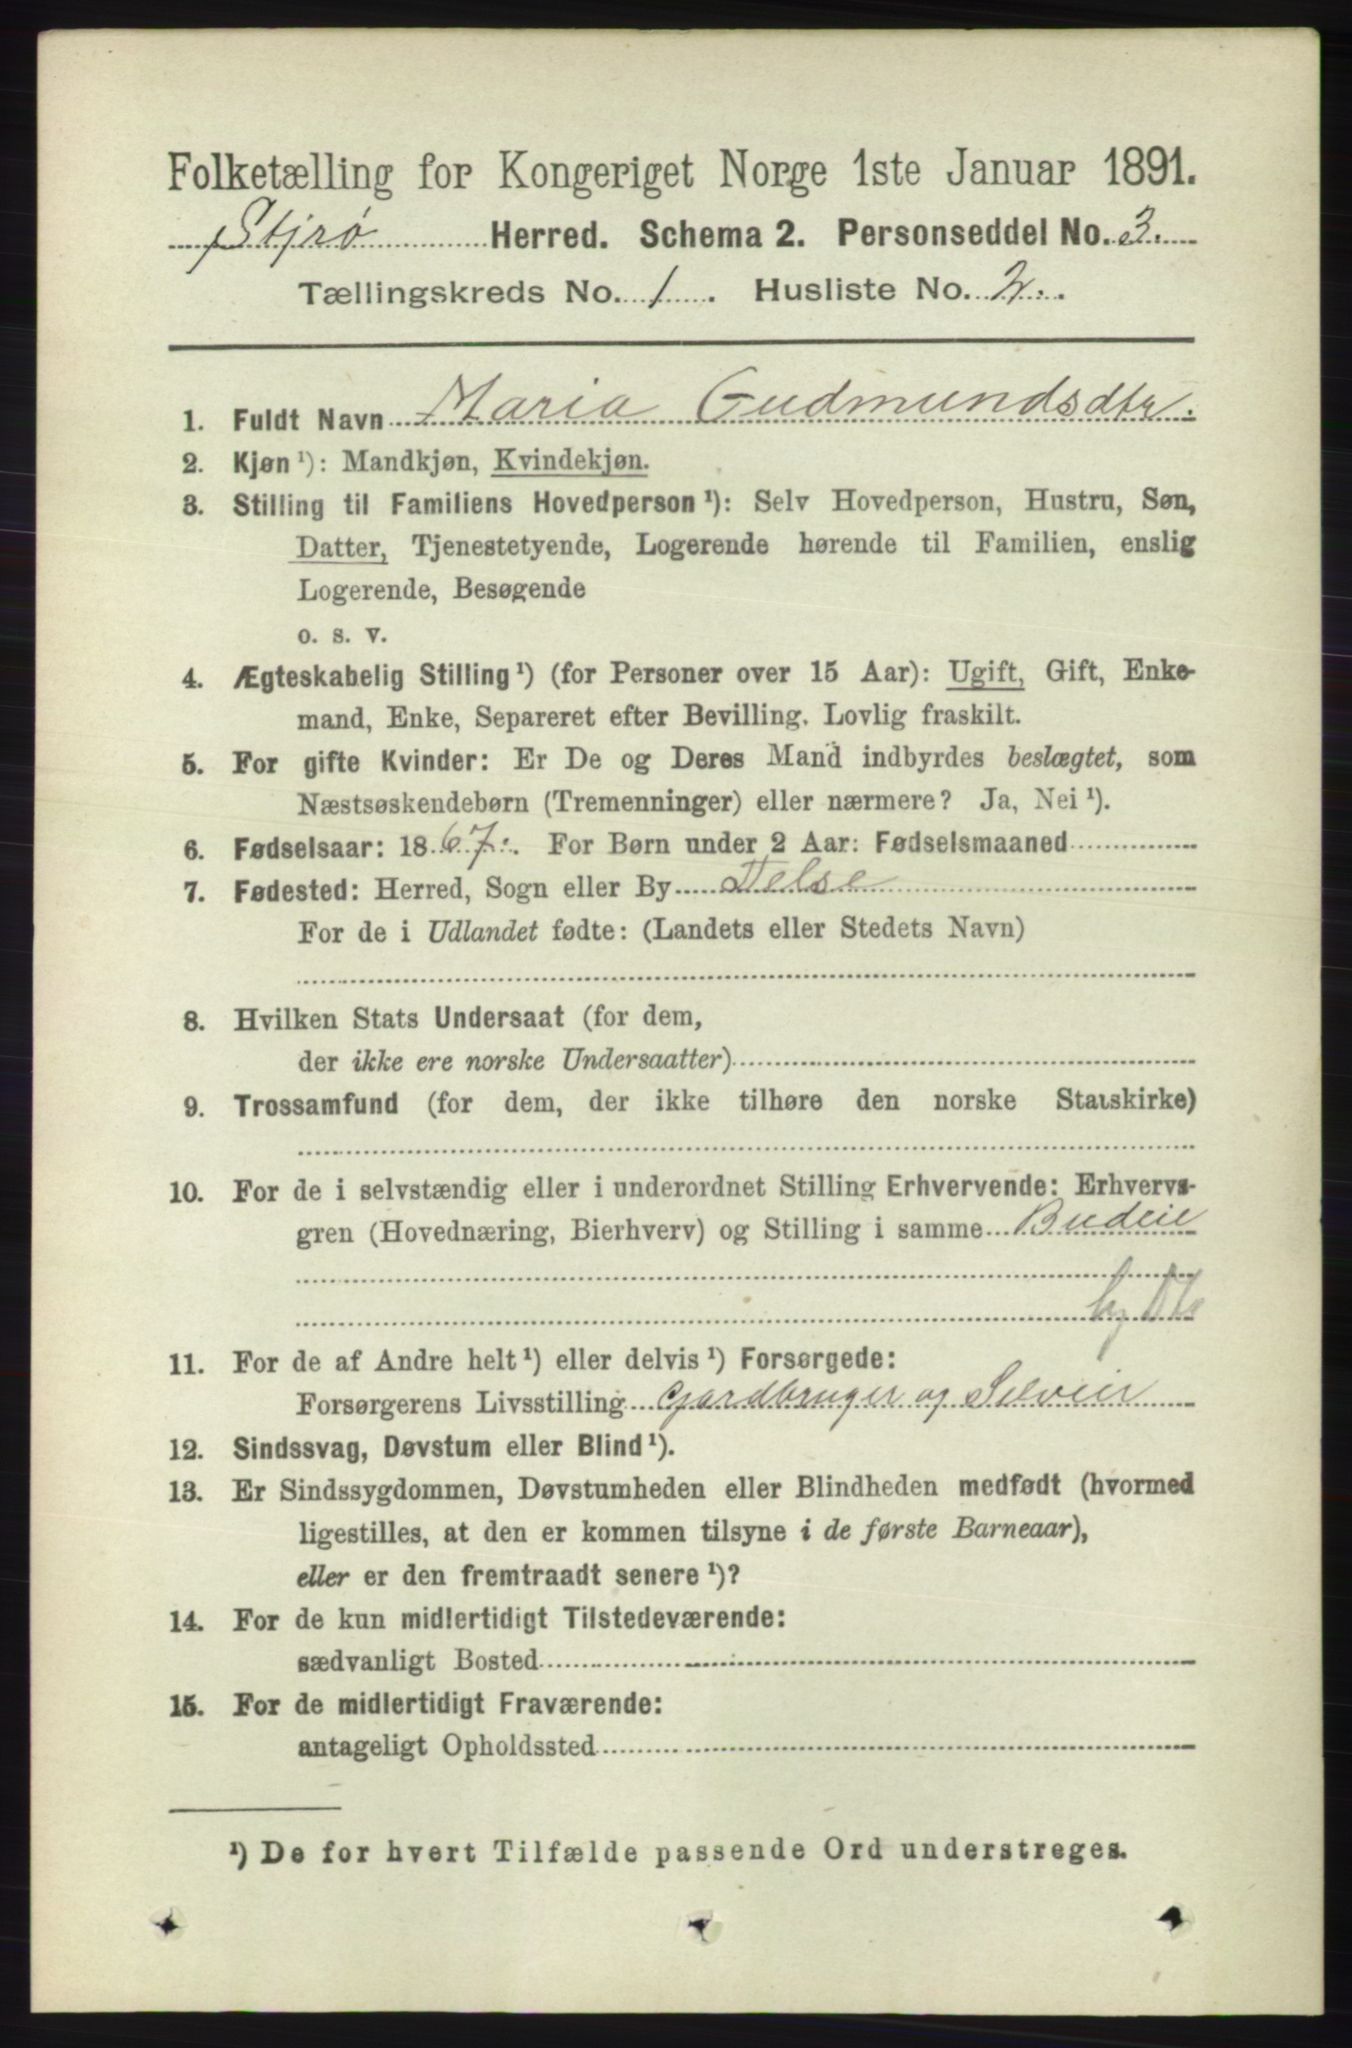 Folketælling for Kongeriget Norge 1ste Januar 1891.
Stjrø Herred. Schema 2. Personseddel No. 3.
Tællingskreds No. 1. Husliste No. 2.
1. Fuldt Navn Maria Gudmundsdtr.
2. Kjøn ¹): Mandkjøn, Kvindekjøn.
3. Stilling til Familiens Hovedperson ¹): Selv Hovedperson, Hustru, Søn,
Datter, Tjenestetyende, Logerende hørende til Familien, enslig
Logerende, Besøgende
o. s. v.
4. Ægteskabelig Stilling ¹) (for Personer over 15 Aar): Ugift, Gift, Enke-
mand, Enke, Separeret efter Bevilling. Lovlig fraskilt.
5. For gifte Kvinder: Er De og Deres Mand indbyrdes beslægtet, som
Næstsøskendebørn (Tremenninger) eller nærmere? Ja, Nei ¹).
6. Fødselsaar: 1867. For Børn under 2 Aar: Fødselsmaaned
7. Fødested: Herred, Sogn eller By
For de i Udlandet fødte: (Landets eller Stedets Navn)
8. Hvilken Stats Undersaat (for dem,
der ikke ere norske Undersaatter)
9. Trossamfund (for dem, der ikke tilhøre den norske Statskirke)
10. For de i selvstændig eller i underordnet Stilling Erhvervende: Erhvervs-
gren (Hovednæring, Bierhverv) og Stilling i samme Budeie
11. For de af Andre helt ¹) eller delvis ¹) Forsørgede:
Forsørgerens Livsstilling Gardbruger og Selveier
12. Sindssvag, Døvstum eller Blind ¹).
13. Er Sindssygdommen, Døvstumheden eller Blindheden medfødt (hvormed
ligestilles, at den er kommen tilsyne i de første Barneaar),
eller er den fremtraadt senere ¹)?
14. For de kun midlertidigt Tilstedeværende:
sædvanligt Bosted
15. For de midlertidigt Fraværende:
antageligt Opholdssted
¹) De for hvert Tilfælde passende Ord understreges.